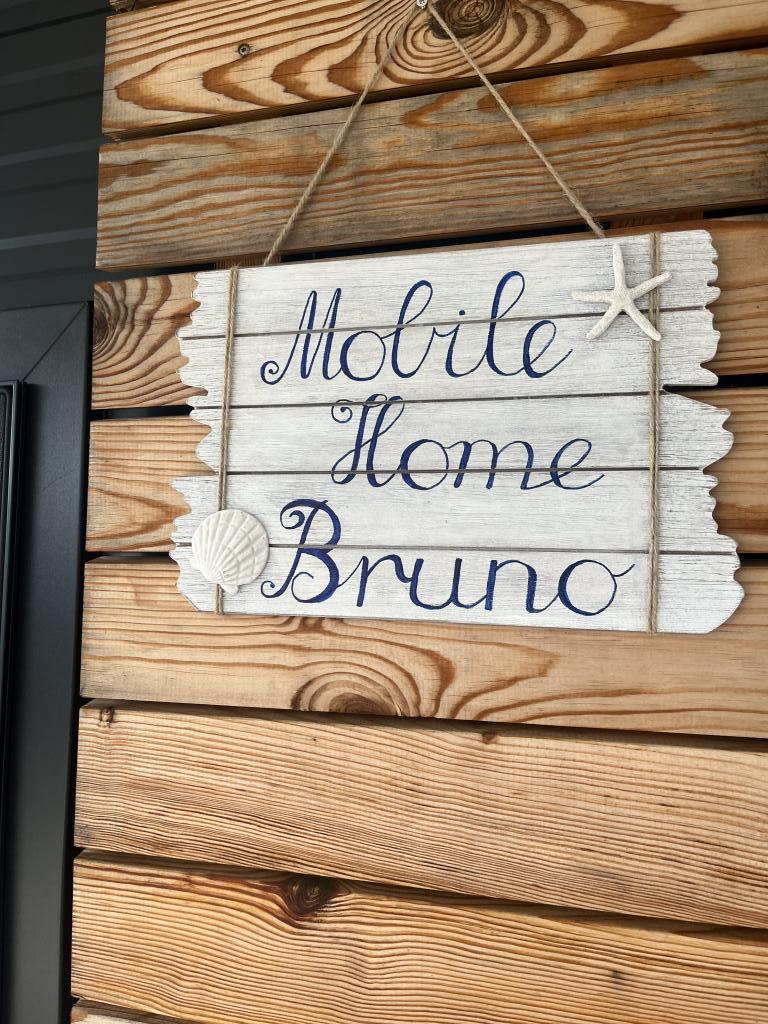 Mobile
Home
Bruno